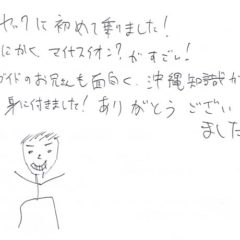 ヤックに初めて乗りました!
にかく、マイナスイオン?がすごし!
ガイドのお兄さんも面白く、沖縄知識が
身に付きました!ありがとうござい
ました